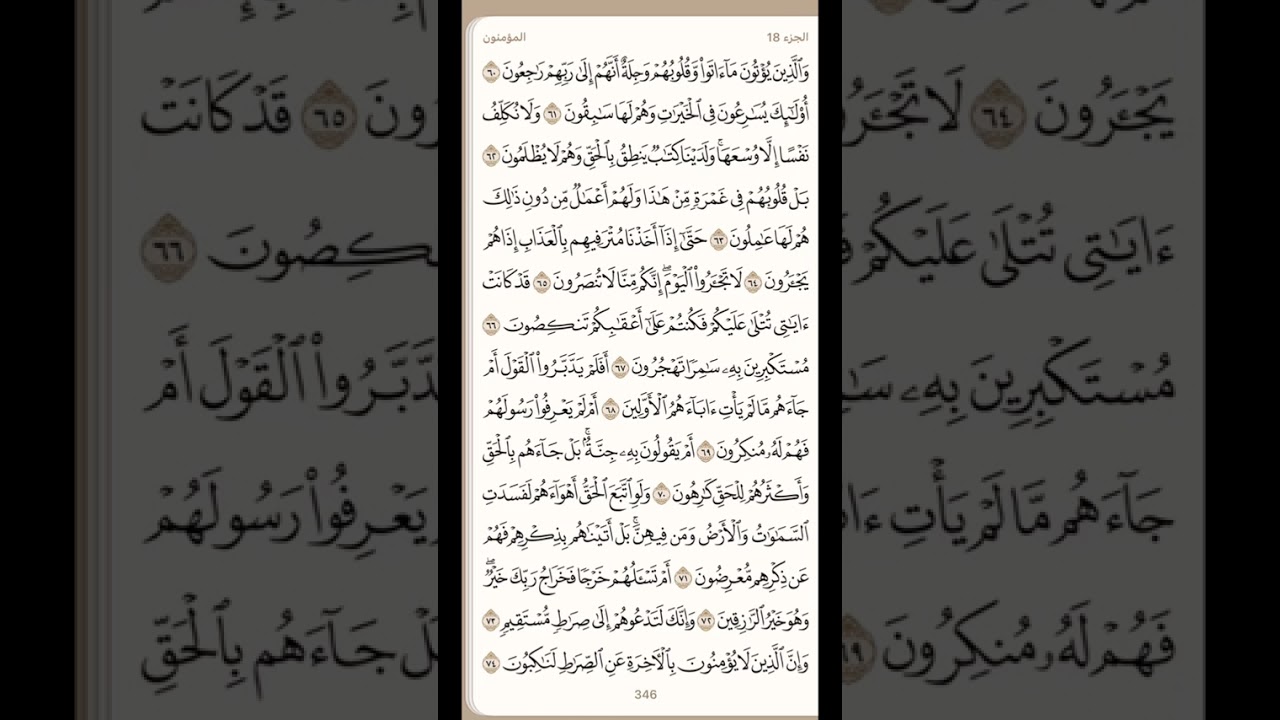 الجزء 18
المؤمنون
وَٱلَّذِينَ يُؤْتُونَ مَآ ءَاتَوا۟ وَّقُلُوبُهُمْ وَجِلَةٌ أَنَّهُمْ إِلَىٰ رَبِّهِمْ رَٰجِعُونَ ٦٠
أُو۟لَـٰٓئِكَ يُسَـٰرِعُونَ فِى ٱلْخَيْرَٰتِ وَهُمْ لَهَا سَـٰبِقُونَ ٦١ وَلَا نُكَلِّفُ
نَفْسًا إِلَّا وُسْعَهَا ۚ وَلَدَيْنَا كِتَـٰبٌ يَنطِقُ بِٱلْحَقِّ وَهُمْ لَا يُظْلَمُونَ ٦٢
بَلْ قُلُوبُهُمْ فِى غَمْرَةٍ مِّنْ هَـٰذَا وَلَهُمْ أَعْمَـٰلٌ مِّن دُونِ ذَٰلِكَ
هُمْ لَهَا عَـٰمِلُونَ ٦٣ حَتَّىٰٓ إِذَآ أَخَذْنَا مُتْرَفِيهِم بِٱلْعَذَابِ إِذَا هُمْ
يَجْـَٔرُونَ ٦٤ لَا تَجْـَٔرُوا۟ ٱلْيَوْمَ ۖ إِنَّكُم مِّنَّا لَا تُنصَرُونَ ٦٥ قَدْ كَانَتْ
ءَايَـٰتِى تُتْلَىٰ عَلَيْكُمْ فَكُنتُمْ عَلَىٰٓ أَعْقَـٰبِكُمْ تَنكِصُونَ ٦٦
مُسْتَكْبِرِينَ بِهِۦ سَـٰمِرًا تَهْجُرُونَ ٦٧ أَفَلَمْ يَدَّبَّرُوا۟ ٱلْقَوْلَ أَمْ
جَآءَهُم مَّا لَمْ يَأْتِ ءَابَآءَهُمُ ٱلْأَوَّلِينَ ٦٨ أَمْ لَمْ يَعْرِفُوا۟ رَسُولَهُمْ
فَهُمْ لَهُۥ مُنكِرُونَ ٦٩ أَمْ يَقُولُونَ بِهِۦ جِنَّةٌۢ ۚ بَلْ جَآءَهُم بِٱلْحَقِّ
وَأَكْثَرُهُمْ لِلْحَقِّ كَـٰرِهُونَ ٧٠ وَلَوِ ٱتَّبَعَ ٱلْحَقُّ أَهْوَآءَهُمْ لَفَسَدَتِ
ٱلسَّمَـٰوَٰتُ وَٱلْأَرْضُ وَمَن فِيهِنَّ ۚ بَلْ أَتَيْنَـٰهُم بِذِكْرِهِمْ فَهُمْ
عَن ذِكْرِهِم مُّعْرِضُونَ ٧١ أَمْ تَسْـَٔلُهُمْ خَرْجًا فَخَرَاجُ رَبِّكَ خَيْرٌ ۖ
وَهُوَ خَيْرُ ٱلرَّٰزِقِينَ ٧٢ وَإِنَّكَ لَتَدْعُوهُمْ إِلَىٰ صِرَٰطٍ مُّسْتَقِيمٍ ٧٣
وَإِنَّ ٱلَّذِينَ لَا يُؤْمِنُونَ بِٱلْـَٔاخِرَةِ عَنِ ٱلصِّرَٰطِ لَنَـٰكِبُونَ ٧٤
346